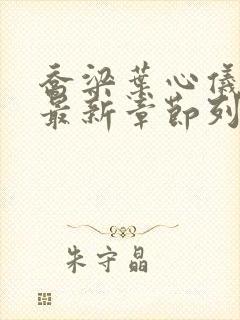 乔梁叶心仪
最新章节列
朱守晶